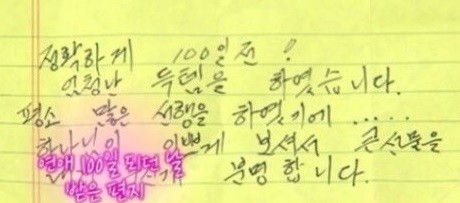 정확하게 100일전!
엄청난 득템을 하였습니다.
평소 많은 선행을 하였기에.....
하나님이 이쁘게 보셔서 큰선물을
분명합니다.
연애 100일 되던 날
받은 편지